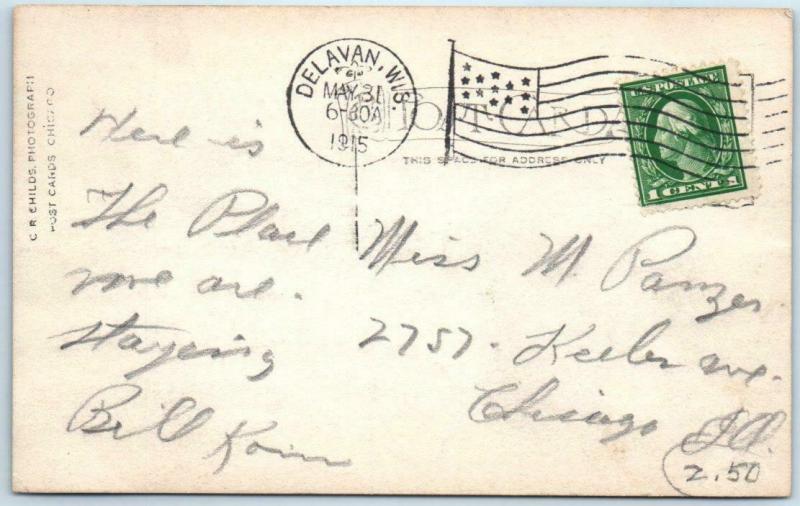 C. R. CHILDS, PHOTOGRAPH
POST CARDS CHICAGO
DELAVAN, WIS
MAY 31
6-30A
1915
POST CARD
THIS SPACE FOR ADDRESS ONLY
U.S. POSTAGE
1 CENT 1
Here is
The Place
we are.
staying
Bill
Miss M. Panzer
2757. Keeler ave.
Chicago Ill.
2.50